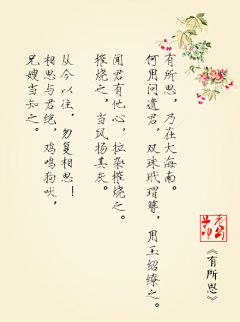 《有所思》
有所思，乃在大海南。
何用问遗君，双珠玳瑁簪，用玉绍缭之。
闻君有他心，拉杂摧烧之。
摧烧之，当风扬其灰。
从今以往，勿复相思！
相思与君绝，鸡鸣狗吠，
兄嫂当知之。